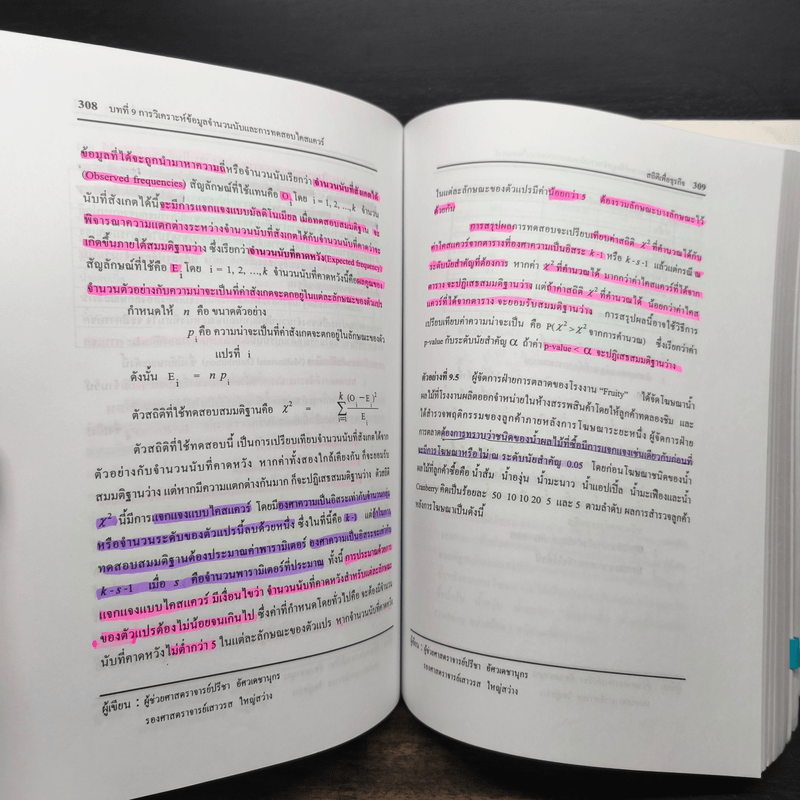 308 บทที่ 9 การวิเคราะห์ข้อมูลจำนวนนับและการทดสอบไคสแควร์
ข้อมูลที่ได้จะถูกนำมาหาความถี่หรือจำนวนนับเรียกว่า จำนวนนับที่สังเกตได้
(Observed frequencies) สัญลักษณ์ที่ใช้แทนคือ Oi โดย i = 1, 2, ...,k จำนวน
นับที่สังเกตได้นี้จะมีการแจกแจงแบบมัลติโนเมียล เมื่อทดสอบสมมติฐาน จะ
พิจารณาความแตกต่างระหว่างจำนวนนับที่สังเกตได้กับจำนวนนับที่คาดว่าจะ
เกิดขึ้นภายใต้สมมติฐานว่าง ซึ่งเรียกว่าจำนวนนับที่คาดหวัง(Expected frequency)
สัญลักษณ์ที่ใช้คือ Ei โดย i = 1, 2, ...,k จำนวนนับที่คาดหวังนี้คือผลคูณของ
จำนวนตัวอย่างกับความน่าจะเป็นที่ค่าสังเกตจะตกอยู่ในแต่ละลักษณะของตัวแปร
กำหนดให้ n คือ ขนาดตัวอย่าง
p คือ ความน่าจะเป็นที่ค่าสังเกตจะตกอยู่ในลักษณะของตัว
แปรที่ i
ดังนั้น Ei = n pi
ตัวสถิติที่ใช้ทดสอบสมมติฐานคือ χ² = Σ(i=1, k) (Oi − Ei)² / Ei
ตัวสถิติที่ใช้ทดสอบนี้ เป็นการเปรียบเทียบจำนวนนับที่สังเกตได้จาก
ตัวอย่างกับจำนวนนับที่คาดหวัง หากค่าทั้งสองใกล้เคียงกัน ก็จะยอมรับ
สมมติฐานว่าง แต่หากมีความแตกต่างกันมาก ก็จะปฏิเสธสมมติฐานว่าง ตัวสถิติ
χ² นี้มีการแจกแจงแบบไคสแควร์ โดยมีองศาความเป็นอิสระเท่ากับจำนวนกลุ่ม
หรือจำนวนระดับของตัวแปรนี้ลบด้วยหนึ่ง ซึ่งในที่นี้คือ k-1 แต่ถ้าในการ
ทดสอบสมมติฐานต้องประมาณค่าพารามิเตอร์ องศาความเป็นอิสระจะเท่ากับ
k-s-1 เมื่อ s คือจำนวนพารามิเตอร์ที่ประมาณ ทั้งนี้ การประมาณด้วยการ
แจกแจงแบบไคสแควร์ มีเงื่อนไขว่า จำนวนนับที่คาดหวังสำหรับแต่ละลักษณะ
ของตัวแปรต้องไม่น้อยจนเกินไป ซึ่งค่าที่กำหนดโดยทั่วไปคือ จะต้องมีจำนวน
นับที่คาดหวังไม่ต่ำกว่า 5 ในแต่ละลักษณะของตัวแปร หากจำนวนนับที่คาดหวัง
ผู้เขียน : ผู้ช่วยศาสตราจารย์ปรีชา อัศวเดชานุกร
รองศาสตราจารย์เสาวรส ใหญ่สว่าง
สถิติเพื่อธุรกิจ 309
ในแต่ละลักษณะของตัวแปรมีค่าน้อยกว่า 5 ต้องรวมลักษณะบางลักษณะไว้
ด้วยกัน
การสรุปผลการทดสอบจะเปรียบเทียบค่าสถิติ χ² ที่คำนวณได้กับ
ค่าไคสแควร์จากตารางที่องศาความเป็นอิสระ k-1 หรือ k-s-1 แล้วแต่กรณี ณ
ระดับนัยสำคัญที่ต้องการ หากค่า χ² ที่คำนวณได้ มากกว่าค่าไคสแควร์ที่ได้จาก
ตาราง จะปฏิเสธสมมติฐานว่าง แต่ถ้าค่าสถิติ χ² ที่คำนวณได้ น้อยกว่าค่าไคส
แควร์ที่ได้จากตาราง จะยอมรับสมมติฐานว่าง การสรุปผลนี้อาจใช้วิธีการ
เปรียบเทียบค่าความน่าจะเป็น คือ P(χ² > χ² จากการคำนวณ) ซึ่งเรียกว่าค่า
p-value กับระดับนัยสำคัญ α ถ้าค่า p-value < α จะปฏิเสธสมมติฐานว่าง
ตัวอย่างที่ 9.5 ผู้จัดการฝ่ายการตลาดของโรงงาน “Fruity” ได้จัดโฆษณาน้ำ
ผลไม้ที่โรงงานผลิตออกจำหน่ายในห้างสรรพสินค้าโดยให้ลูกค้าทดลองชิม และ
ได้สำรวจพฤติกรรมของลูกค้าภายหลังการโฆษณาระยะหนึ่ง ผู้จัดการฝ่าย
การตลาดต้องการทราบว่าชนิดของน้ำผลไม้ที่ซื้อมีการแจกแจงเช่นเดียวกับก่อนที่
จะมีการโฆษณาหรือไม่ ณ ระดับนัยสำคัญ 0.05 โดยก่อนโฆษณาชนิดของน้ำ
ผลไม้ที่ลูกค้าซื้อคือ น้ำส้ม น้ำองุ่น น้ำมะนาว น้ำแอปเปิ้ล น้ำมะเฟืองและน้ำ
Cranberry คิดเป็นร้อยละ 50 10 10 20 5 และ 5 ตามลำดับ ผลการสำรวจลูกค้า
หลังการโฆษณาเป็นดังนี้
ผู้เขียน : ผู้ช่วยศาสตราจารย์ปรีชา อัศวเดชานุกร
รองศาสตราจารย์เสาวรส ใหญ่สว่าง